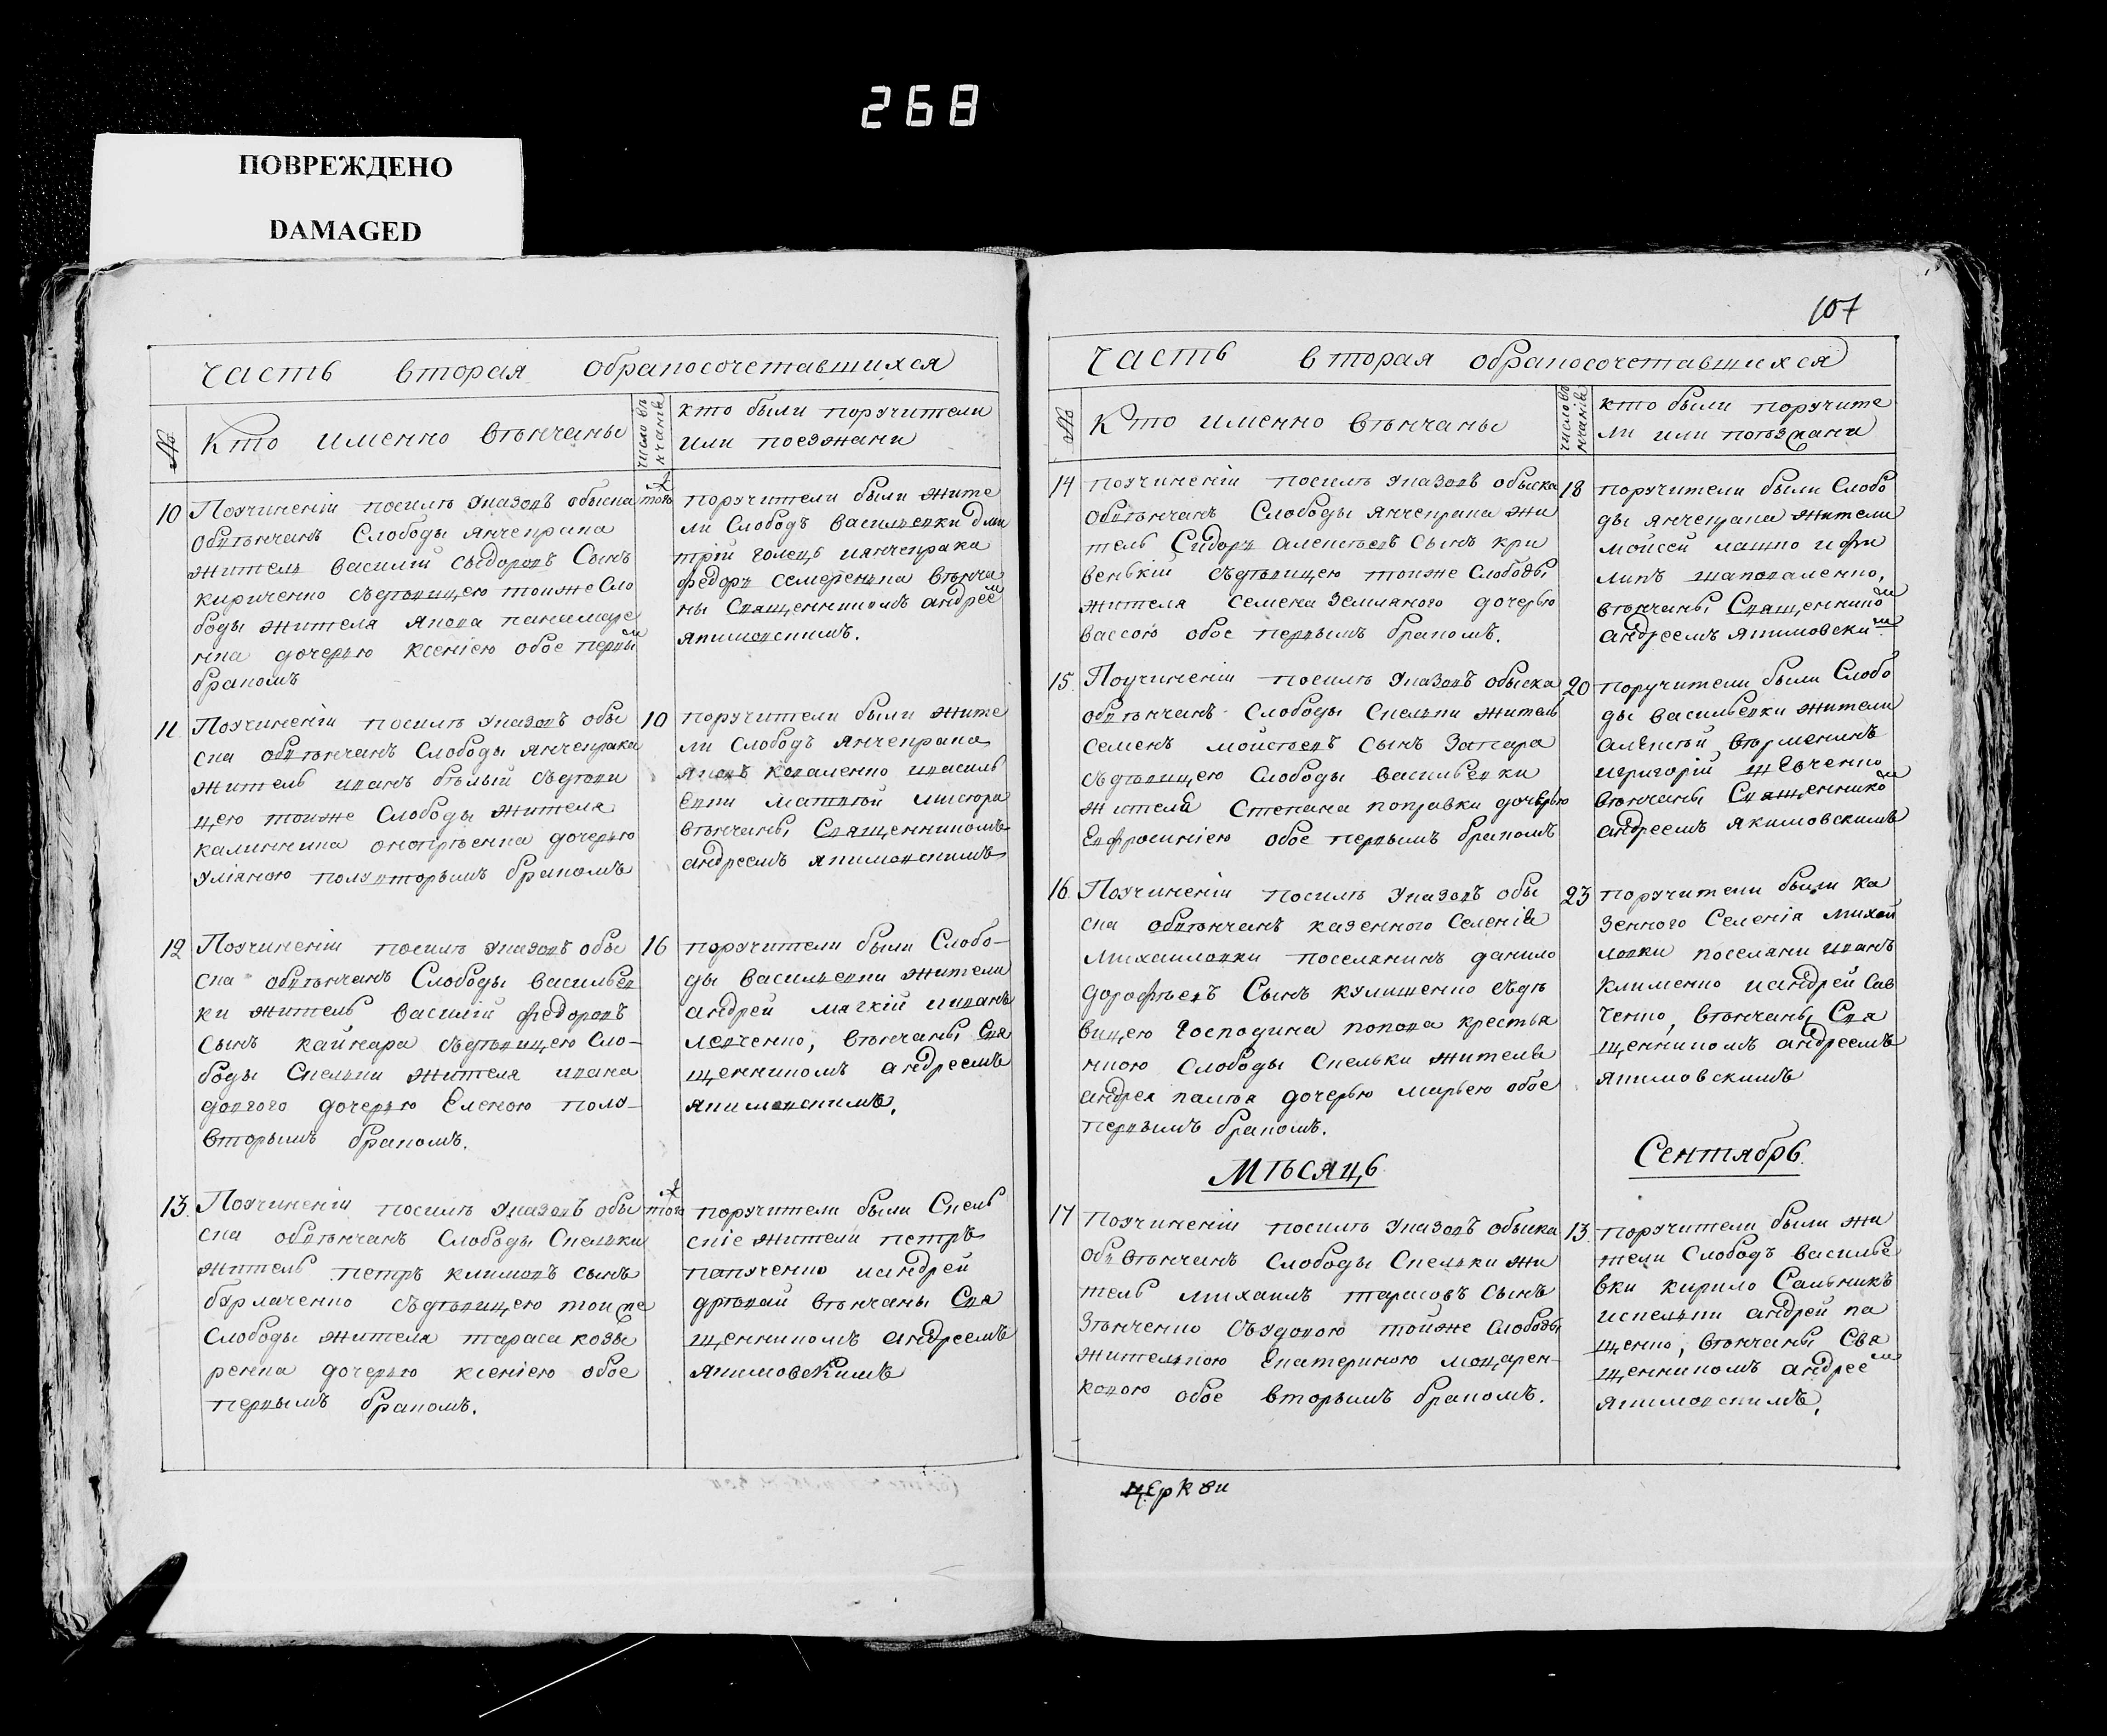 268
ПОВРЕЖДЕНО
DAMAGED
часть вторая обракосочетавшихся
№
Кто именно вѣнчаны
число вѣнчанія
кто были поручители
или поезжани
10 Поучиненіи посилѣ указовъ обыска
обвѣнчанъ Слободы янчекрака
житель василій сыдоровъ Сынъ
кириченко съдѣвицею тоиже Сло
боды жителя якова
дочерью ксеніею обое первым
бракомъ
того
поручители были жите
ли Слободъ васильевки дми
трій голецъ иянчекрака
федоръ вѣнча
ны Священникомъ андрее
якимовскимъ.
11 Поучиненіи посилѣ указовъ обы
ска обвѣнчанъ Слободы янчекрака
житель иванъ бѣлый съдѣви
цею тоиже Слободы жителя
дочерью
уліяною полувторымъ бракомъ
10
поручители были жите
ли Слободъ янчекрака
яковъ коваленко ивасиль
евки матвѣй мисюра
вѣнчаны Священникомъ
андреемъ якимовскимъ
12 Поучиненіи посилѣ указовъ обы
ска обвѣнчанъ Слободы васильев
ки житель василій федоровъ
Сынъ кайкара съдѣвицею Сло-
боды Скельки жителя ивана
долгого дочерью Еленою полу-
вторымъ бракомъ.
16
поручители были Слобо-
ды васильевки жители
андрей мягкій ииванъ
левченко, вѣнчаны Свя
щенникомъ андреемъ
якимовскимъ.
13. Поучиненіи посилѣ указовъ обы
ска обвѣнчанъ Слободы Скельки
житель петръ климовъ сынъ
бурлаченко съдѣвицею тоиже
Слободы жителя тараса козы
ренка дочерью ксеніею обое
первымъ бракомъ.
того
поручители были Скель
скіе жители петръ
иандрей
вѣнчаны Свя
щенникомъ андреемъ
якимовскимъ
107
часть вторая обракосочетавшихся
№
Кто именно вѣнчаны
число вѣнчанія
кто были поручите
ли или поѣзжани
14 поучиненіи посилѣ указовъ обыска
обвѣнчанъ Слободы янчекрака жи
тель Сидоръ алексѣевъ сынъ кри
венькій съдѣвицею тоиже Слободы
жителя семена земляного дочерью
вассою обое первымъ бракомъ.
18
поручители были Слобо
ды янчекрака жители
мойсей машко ифи
липъ шаповаленко,
вѣнчаны Священнико м
андреемъ якимовским
15. Поучиненіи посилѣ указовъ обыска
обвѣнчанъ Слободы Скельки житель
семенъ мойсѣевъ сынъ запара
съдѣвицею Слободы васильевки
жителя Степана поправки дочерью
Евфросиніею обое первымъ бракомъ
20
поручители были Слобо
ды васильевки жители
алексѣй вѣрменикъ
игригорій шевченко
вѣнчаны Священнико м
андреемъ якимовскимъ
16. Поучиненіи посилѣ указовъ обы
ска обвѣнчанъ казенного Селенія
михаиловки поселянинъ данило
дорофѣевъ Сынъ кулишенко съдѣ
вицею господина попова крестья
ниною Слободы Скельки жителя
андрея дочерью марьею обое
первымъ бракомъ.
23
поручители были ка
зенного Селенія михай
ловки поселяни иванъ
клименко иандрей Сав
ченко, вѣнчаны Свя
щенникомъ андреемъ
якимовскимъ
Мѣсяцъ Сентябрь.
17 поучиненіи посилѣ указовъ обыска
обвѣнчанъ Слободы Скельки жи
тель михаилъ тарасовъ сынъ
зѣнченко съвдовою тойже слободы
жителькою Екатериною моцарен-
ковою обое вторымъ бракомъ.
13.
поручители были жи
тели Слободъ василье
вки кирило Сальникъ
искельки андрей па
щенко, вѣнчаны Свя
щенникомъ андрее м
якимовскимъ.
церкви